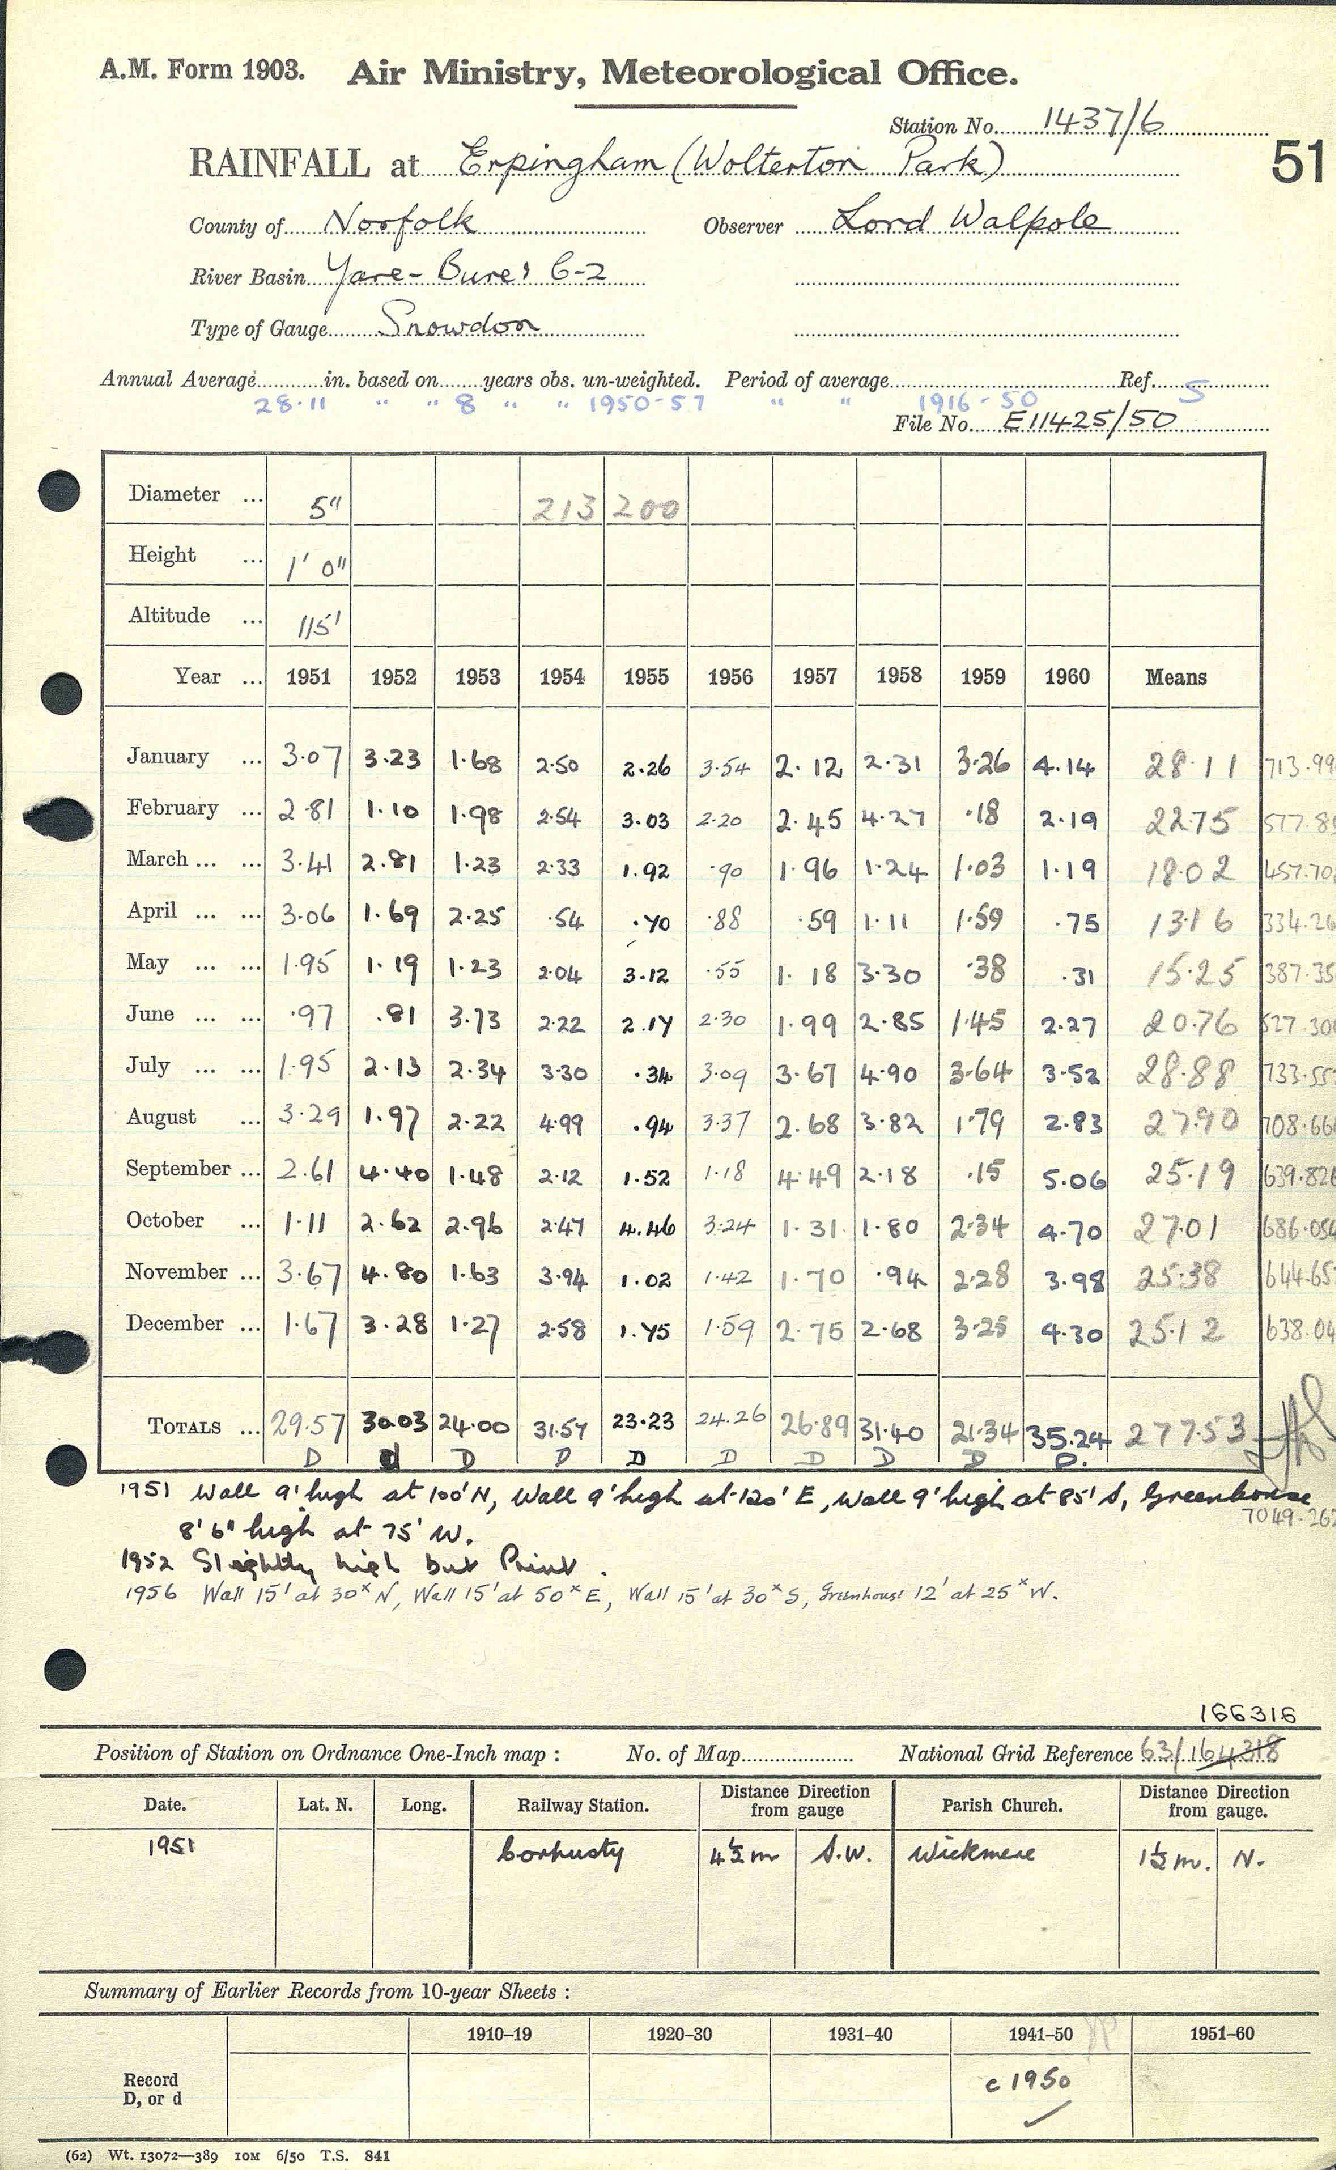 A.M. Form 1903. Air Ministry, Meteorological Office.
Station No. 1437/6
RAINFALL at Erpingham (Wolterton Park)
51
County of Norfolk Observer Lord Walpole
River Basin Yare-Bure: 6-2
Type of Gauge Snowdon
Annual Average in. based on years obs. un-weighted. Period of average Ref. 5
28·11 " " 8 " " 1950-57 " " 1916-50
File No. E11425/50
Diameter ... 5" 213 200
Height ... 1' 0"
Altitude ... 115'
Year ... 1951 1952 1953 1954 1955 1956 1957 1958 1959 1960 Means
January ... 3·07 3·23 1·68 2·50 2·26 3·54 2·12 2·31 3·26 4·14 28·11 713·99
February ... 2·81 1·10 1·98 2·54 3·03 2·20 2·45 4·27 ·18 2·19 22·75 577·8
March ... ... 3·41 2·81 1·23 2·33 1·92 ·90 1·96 1·24 1·03 1·19 18·02 457·70
April ... ... 3·06 1·69 2·25 ·54 ·70 ·88 ·59 1·11 1·59 ·75 13·16 334·26
May ... ... 1·95 1·19 1·23 2·04 3·12 ·55 1·18 3·30 ·38 ·31 15·25 387·35
June ... ... ·97 ·81 3·73 2·22 2·17 2·30 1·99 2·85 1·45 2·27 20·76 527·30
July ... ... 1·95 2·13 2·34 3·30 ·34 3·09 3·67 4·90 3·64 3·52 28·88 733·55
August ... 3·29 1·97 2·22 4·99 ·94 3·37 2·68 3·82 1·79 2·83 27·90 708·66
September ... 2·61 4·40 1·48 2·12 1·52 1·18 4·49 2·18 ·15 5·06 25·19 639·826
October ... 1·11 2·62 2·96 2·47 4·46 3·24 1·31 1·80 2·34 4·70 27·01 686·054
November ... 3·67 4·80 1·63 3·94 1·02 1·42 1·70 ·94 2·28 3·98 25·38 644·65
December ... 1·67 3·28 1·27 2·58 1·75 1·59 2·75 2·68 3·25 4·30 25·12 638·04
TOTALS ... 29·57 30·03 24·00 31·57 23·23 24·26 26·89 31·40 21·34 35·24 277·53
D d D D D D D D D D.
1951 Wall 9' high at 100' N, Wall 9' high at 120' E, Wall 9' high at 85' S, Greenhouse
7049·262
8' 6" high at 75' W.
1952 Slightly high but Print.
1956 Wall 15' at 30ˣ N, Wall 15' at 50ˣ E, Wall 15' at 30ˣ S, Greenhouse 12' at 25ˣ W.
166316
Position of Station on Ordnance One-Inch map : No. of Map National Grid Reference 63/164318
Date. Lat. N. Long. Railway Station. Distance from gauge Direction Parish Church. Distance from gauge. Direction
1951 Corpusty 4½ m S.W. Wickmere 1½ m. N.
Summary of Earlier Records from 10-year Sheets :
1910–19 1920–30 1931–40 1941–50 1951–60
Record
D, or d
c 1950
✓
(62) Wt. 13072—389 10M 6/50 T.S. 841